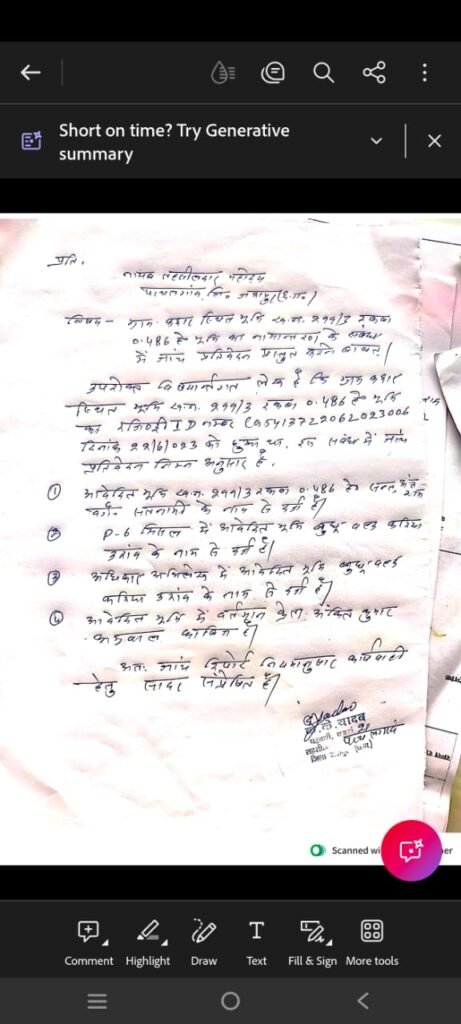 Short on time? Try Generative
summary
प्रति,
नायब तहसीलदार महोदय
विषय - ग्राम स्थित भूमि ख.न. 299/3 रकबा
0.486 हे भूमि का नामान्तरण के संबंध
में जांच प्रतिवेदन प्रस्तुत करने बाबत्।
उपरोक्त विषयान्तर्गत लेख है कि ग्राम
स्थित भूमि ख.न. 299/3 रकबा 0.486 हे भूमि
का रजिस्ट्री ID नम्बर
दिनांक 22/6/023 को हुआ था, इस संबंध में जांच
प्रतिवेदन निम्न अनुसार है.
① आवेदित भूमि ख.न. 299/3 रकबा 0.486 हे
के नाम से दर्ज है।
② P-6 मिसल में आवेदित भूमि बुधू वल्द करिया
उरांव के नाम से दर्ज है।
③ अधिकार अभिलेख में आवेदित भूमि बुधू वल्द
करिया उरांव के नाम से दर्ज है।
④ आवेदित भूमि में वर्तमान क्रेता अंकित कुमार
अग्रवाल काबिज है।
अतः जांच रिपोर्ट नियमानुसार कार्यवाही
हेतु सादर संप्रेषित है।
Yadav
यादव
पटवारी,
Scanned wi
er
Comment Highlight Draw Text Fill & Sign More tools